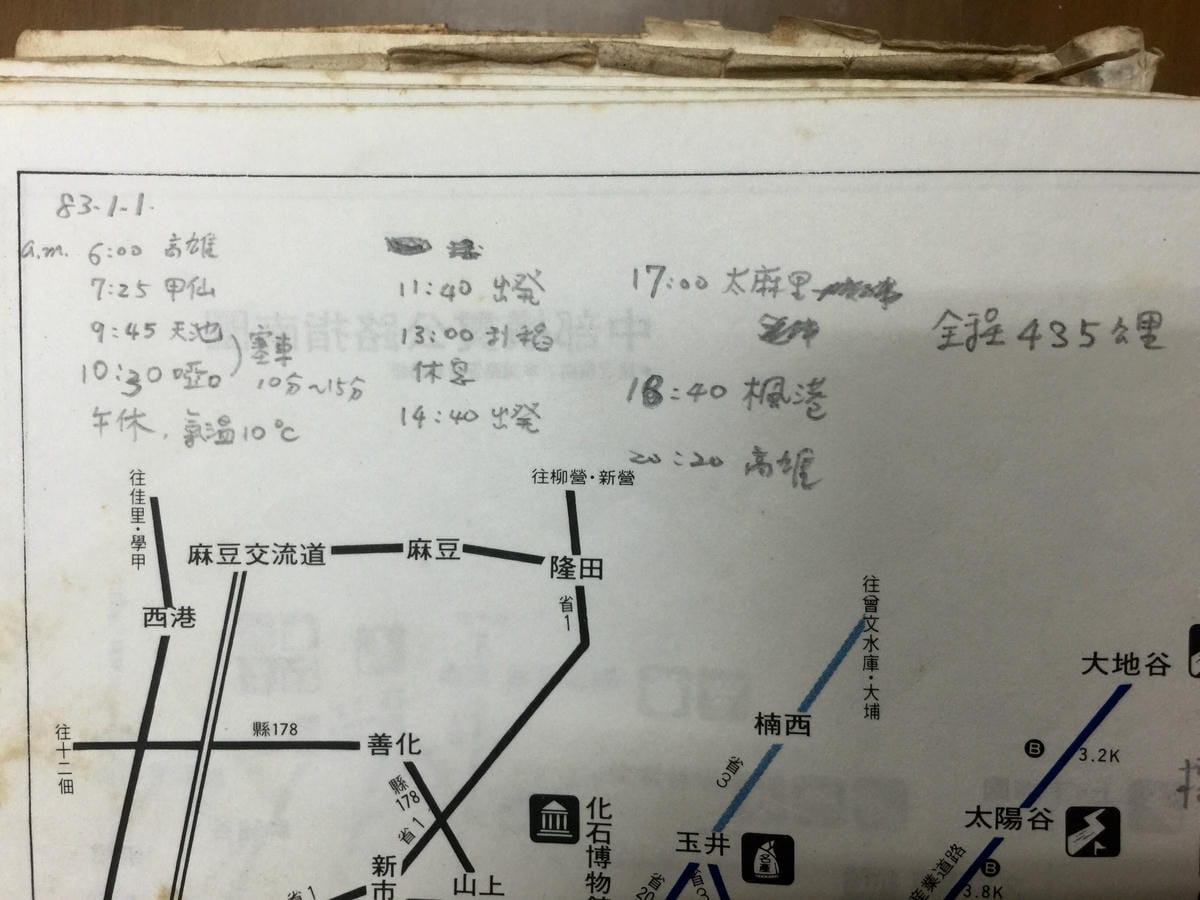 83.1.1.
a.m. 6:00 高雄
7:25 甲仙
9:45 天池
10:30 啞口
塞車
10分~15分
午休, 氣溫10°C
11:40 出發
13:00
休息
14:40 出發
17:00 太麻里
18:40 楓港
20:20 高雄
全程435公里
往佳里・學甲
往柳營・新營
麻豆交流道
麻豆
隆田
省1
西港
往曾文水庫・大埔
大地谷
往十二佃
縣178
善化
楠西
B
3.2K
縣178
省1
省3
化石博物館
太陽谷
玉井
名產
新市
山上
省1
省20
省3
產業道路
B
3.8K